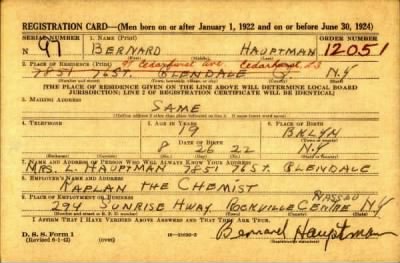 REGISTRATION CARD—(Men born on or after January 1, 1922 and on or before June 30, 1924)
SERIAL NUMBER 1. NAME (Print) ORDER NUMBER
N 97 BERNARD HAUPTMAN 12051
(First) (Middle) (Last)
2. PLACE OF RESIDENCE (Print) 91 Cedarhurst Ave. Cedarhurst, L.I.
7851 76 ST. GLENDALE Q. N.Y
[THE PLACE OF RESIDENCE GIVEN ON THE LINE ABOVE WILL DETERMINE LOCAL BOARD
JURISDICTION; LINE 2 OF REGISTRATION CERTIFICATE WILL BE IDENTICAL]
3. MAILING ADDRESS
SAME
4. TELEPHONE 5. AGE IN YEARS 6. PLACE OF BIRTH
19 BKLYN
DATE OF BIRTH
8 26 22 N.Y
7. NAME AND ADDRESS OF PERSON WHO WILL ALWAYS KNOW YOUR ADDRESS
MRS. L. HAUPTMAN 7851 76 ST. GLENDALE
8. EMPLOYER'S NAME AND ADDRESS
KAPLAN THE CHEMIST
9. PLACE OF EMPLOYMENT OR BUSINESS NASSAU
294 SUNRISE HWAY ROCKVILLE CENTRE N.Y
I AFFIRM THAT I HAVE VERIFIED ABOVE ANSWERS AND THAT THEY ARE TRUE.
D. S. S. Form 1
(Revised 6-1-42) Bernard Hauptman